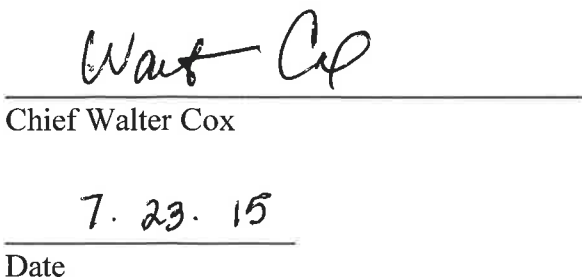 Walt Cox
Chief Walter Cox
7. 23. 15
Date